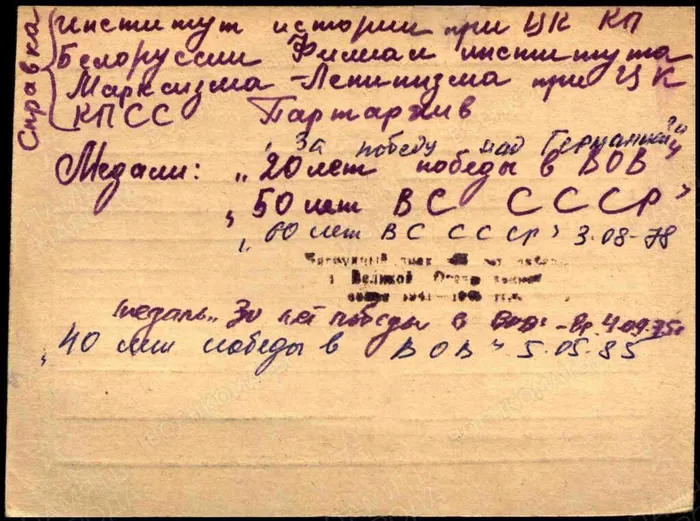 Справка
институт истории при ЦК КП
Белоруссии Филиал института
Марксизма-Ленинизма при ЦК
КПСС Партархив
„За победу над Германией"
Медали: „20 лет победы в ВОВ"
„50 лет ВС СССР"
„60 лет ВС СССР" 3.08-78
знак
в Великой
войне 1941-1945 г.г.
медаль „30 лет победы в ВОВ" - Вр. 4.09.75г
„40 лет победы в ВОВ" 5.05.85